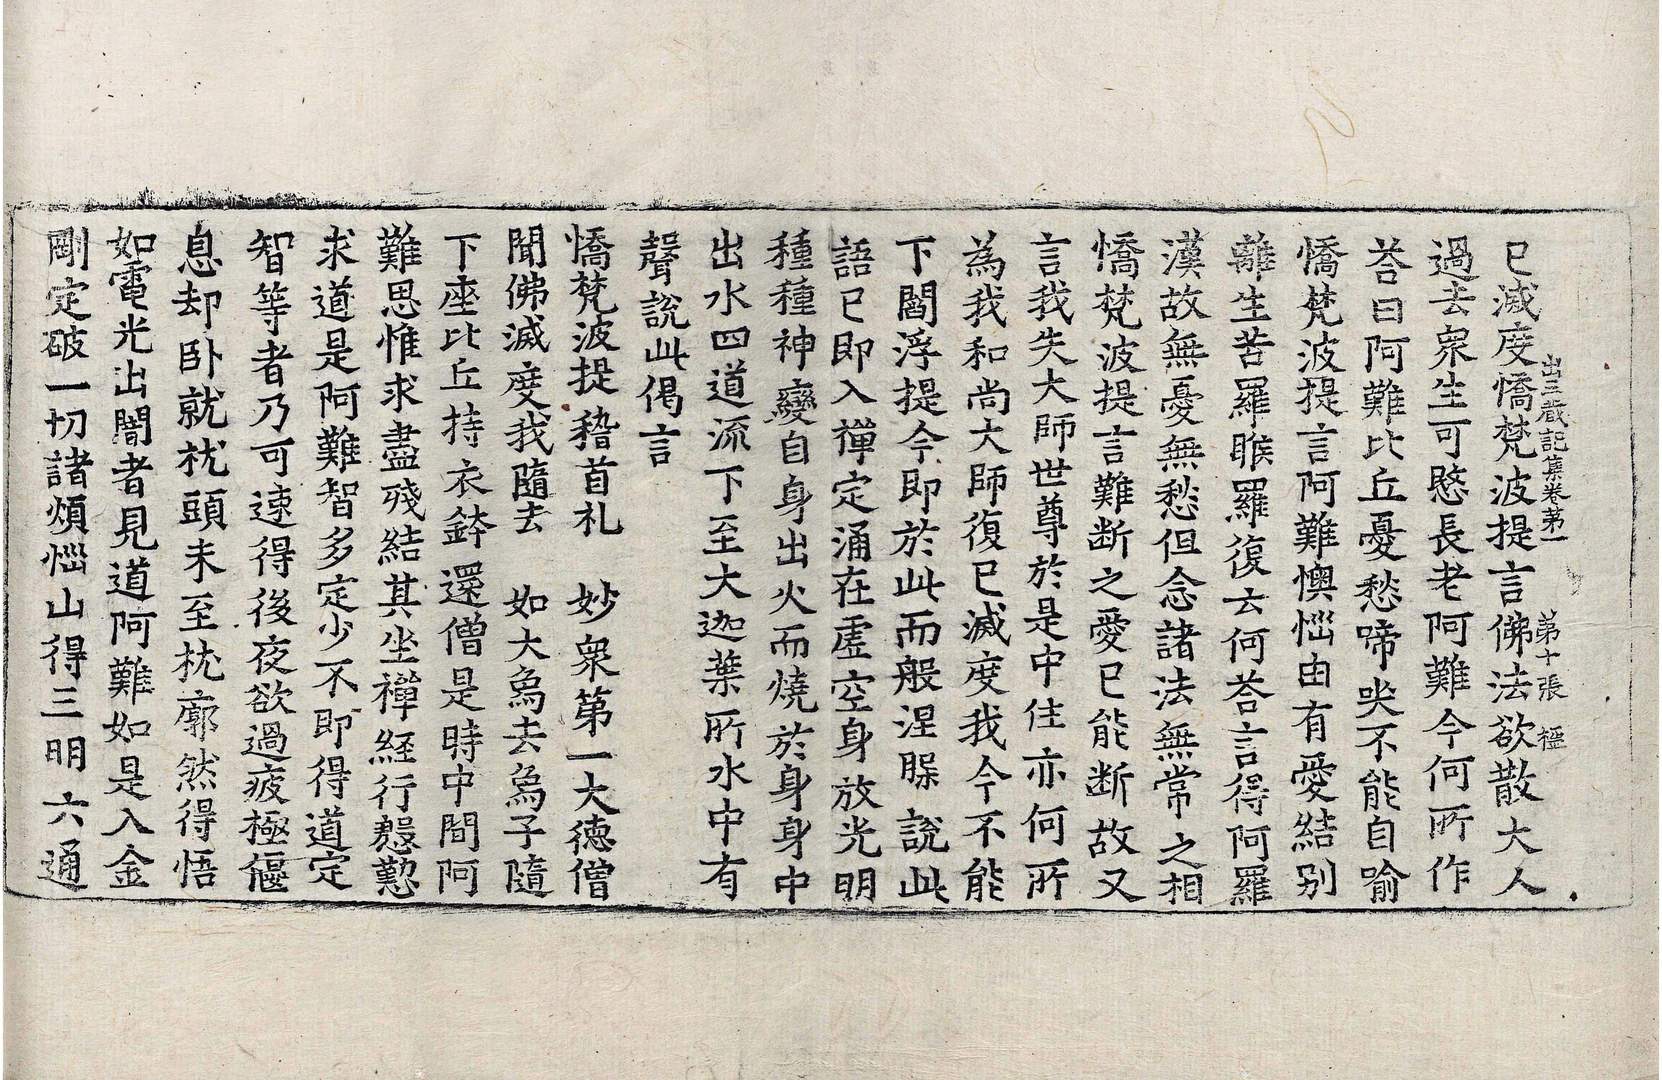 出三藏記集卷第一 第十張 楹
已滅度憍梵波提言佛法欲散大人
過去衆生可愍長老阿難今何所作
荅曰阿難比丘憂愁啼哭不能自喻
憍梵波提言阿難懊惱由有愛結别
離生苦羅睺羅復云何荅言得阿羅
漢故無憂無愁但念諸法無常之相
憍梵波提言難断之愛已能断故又
言我失大師世尊於是中住亦何所
為我和尚大師復已滅度我今不能
下閻浮提今即於此而般涅槃說此
語已即入禪定涌在虛空身放光明
種種神變自身出火而燒於身身中
出水四道流下至大迦葉所水中有
聲說此偈言
憍梵波提稽首礼 妙衆第一大德僧
聞佛滅度我隨去 如大象去象子隨
下座比丘持衣鉢還僧是時中間阿
難思惟求盡殘結其坐禪経行慇懃
求道是阿難智多定少不即得道定
智等者乃可速得後夜欲過疲極偃
息却卧就枕頭未至枕廓然得悟
如電光出闇者見道阿難如是入金
剛定破一切諸煩惱山得三明六通